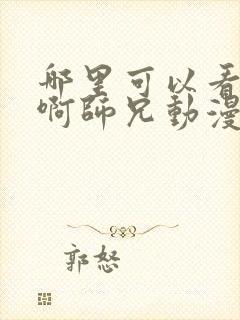 那里可以看
啊師兄動漫
郭怒